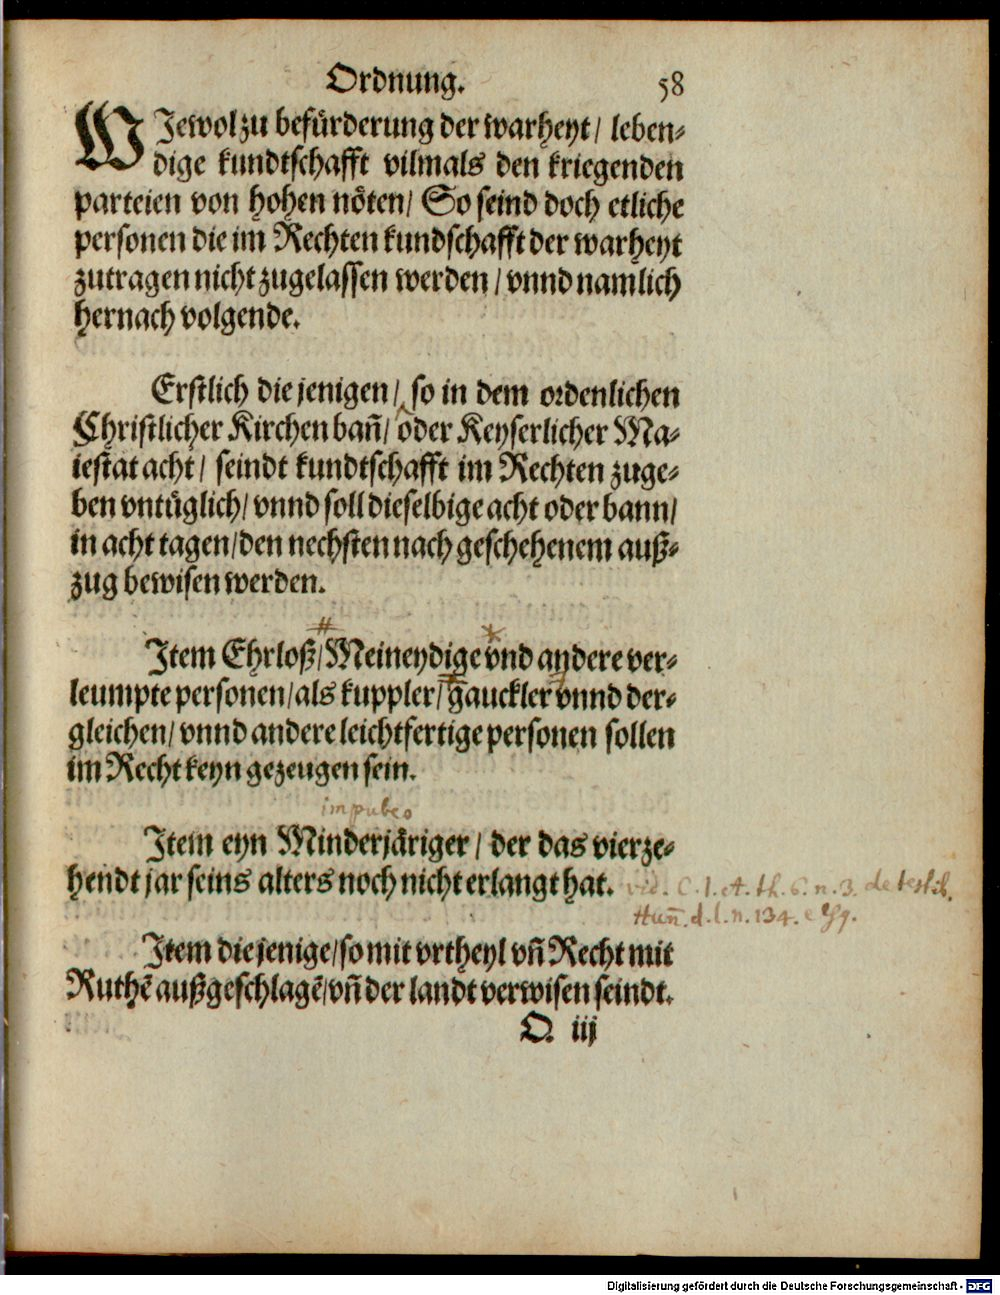 Ordnung. 58
WJewol zu befürderung der warheyt / leben⸗
dige kundtschafft vilmals den kriegenden
parteien von hohen nöten / So seind doch etliche
personen die im Rechten kundschafft der warheyt
zutragen nicht zugelassen werden / vnnd namlich
hernach volgende.
Erstlich die jenigen / so in dem ordenlichen
Christlicher Kirchen bañ / oder Keyserlicher Ma⸗
iestat acht / seindt kundtschafft im Rechten zuge⸗
ben vntüglich / vnnd soll dieselbige acht oder bann /
in acht tagen / den nechsten nach geschehenem auß⸗
zug bewisen werden.
Jtem Ehrloß / Meineydige vnd andere ver⸗
leumpte personen / als kuppler / gauckler vnnd der⸗
gleichen / vnnd andere leichtfertige personen sollen
im Recht keyn gezeugen sein.
impubes
Jtem eyn Minderjäriger / der das vierze⸗
hendt jar seins alters noch nicht erlangt hat. vid. C. 1. A. th. 6. n. 3. de testib.
Huñ. d. l. n. 134.
Jtem die jenige / so mit vrtheyl vñ Recht mit
Ruthẽ außgeschlagẽ / vñ der landt verwisen seindt.
O iij
Digitalisierung gefördert durch die Deutsche Forschungsgemeinschaft - DFG